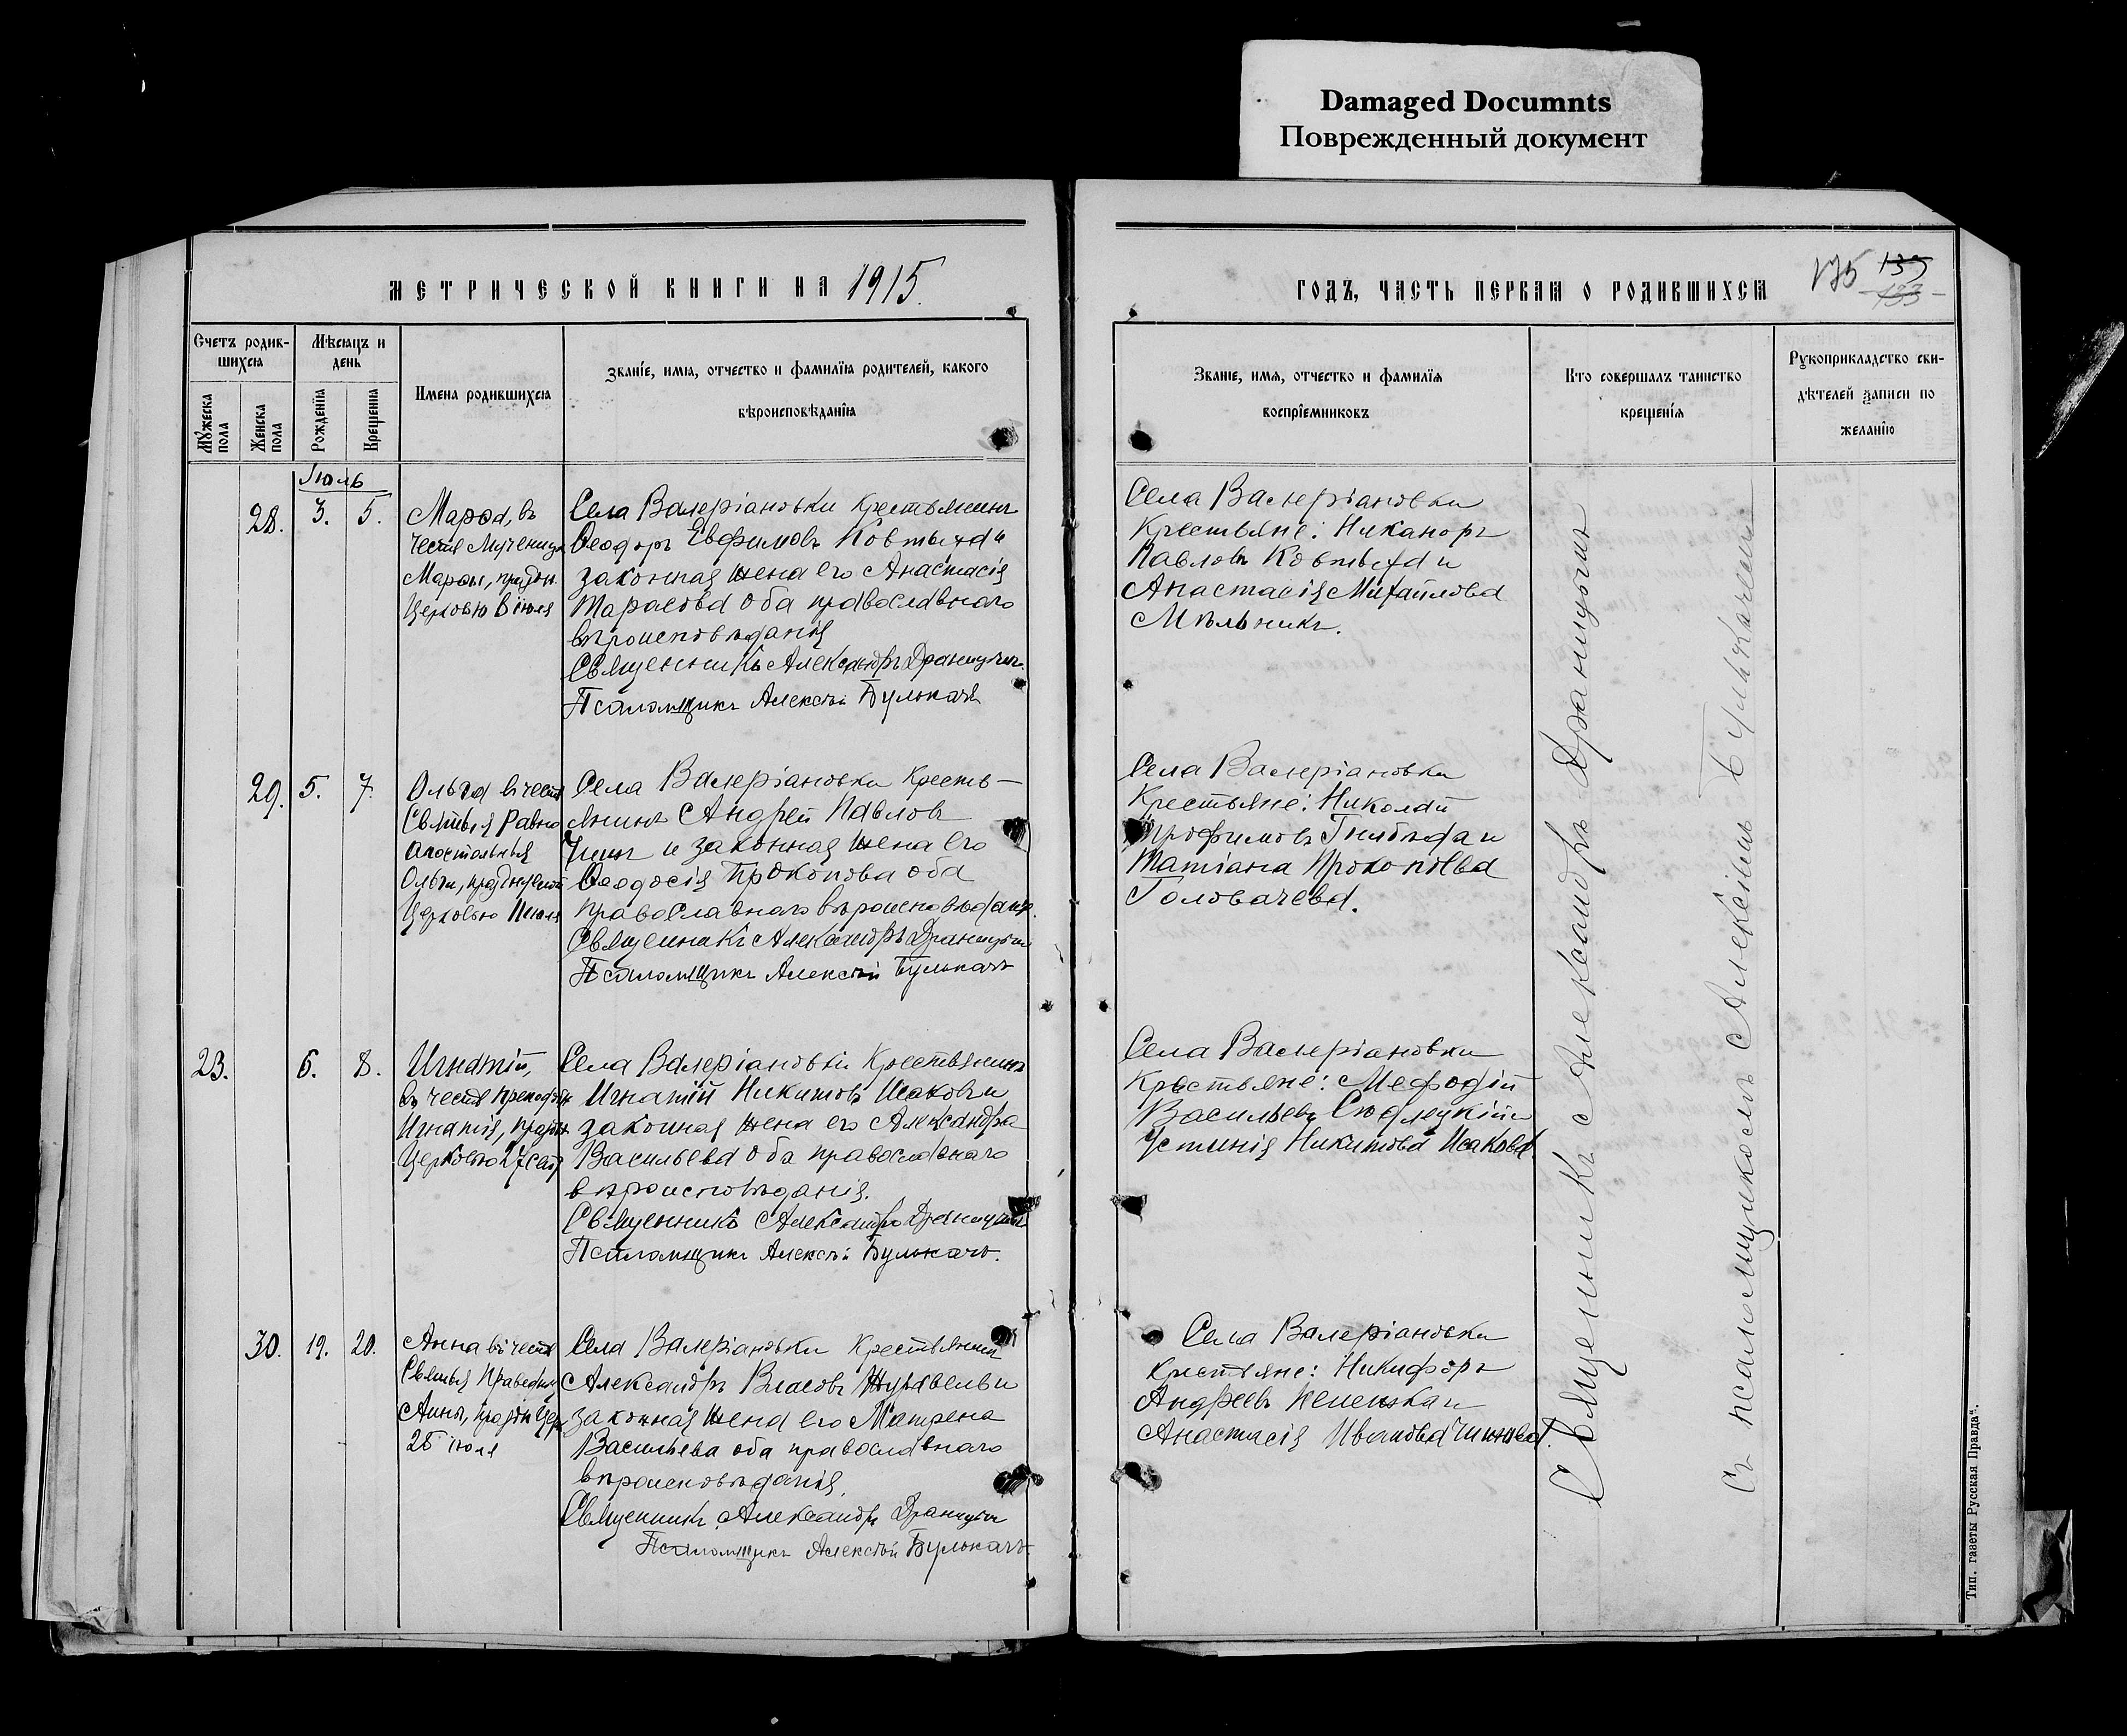 Damaged Documnts
Поврежденный документ
МЕТРИЧЕСКОЙ КНИГИ НА 1915.
ГОДЪ, ЧАСТЬ ПЕРВАЯ О РОДИВШИХСЯ
175 139
133
Счетъ родив-
шихся
Мѣсяцъ и
день
Мужеска
пола
Женска
пола
Рожденія
Крещенія
Имена родившихся
Званіе, имя, отчество и фамилія родителей, какого
вѣроисповѣданія
Званіе, имя, отчество и фамилія
воспріемниковъ
Кто совершалъ таинство
крещенія
Рукоприкладство сви-
дѣтелей записи по
желанію
Іюль
28. 3. 5.
Марѳа, въ
честь Мученицы
Марѳы, праздн.
Церковью 6 іюля
Села Валеріановки крестьянинъ
Ѳеодоръ Евфимовъ Ковтыха и
законная жена его Анастасія
Тарасова оба православнаго
вѣроисповѣданія
Священникъ Александръ Драницынъ
Псаломщикъ Алексѣй Булькачъ
Села Валеріановки
Крестьяне: Никаноръ
Павловъ Ковтыха и
Анастасія Михайлова
Мѣльникъ.
29. 5. 7.
Ольга въ честь
Святыя Равно
апостольныя
Ольги, празднуемой
Церковью 11 іюля
Села Валеріановки Кресть-
янинъ Андрей Павловъ
и законная жена его
Ѳеодосія Прокопова оба
православнаго вѣроисповѣданія.
Священникъ Александръ Драницынъ
Псаломщикъ Алексѣй Булькачъ
Села Валеріановки
Крестьяне: Николай
Трофимовъ Гнибѣда и
Татіана Прокопіева
Головачева.
23. 6. 8.
Игнатій,
въ честь преподобн
Игнатія, праздн
Церковью 27 сент
Села Валеріановки Крестьянинъ
Игнатій Никитовъ Исаковъ и
законная жена его Александра
Васильева оба православнаго
вѣроисповѣданія.
Священникъ Александръ Драницынъ
Псаломщикъ Алексѣй Булькачъ.
Села Валеріановки
Крестьяне: Мефодій
Васильевъ и
Устинія Никитова Исакова.
30. 19. 20.
Анна въ честь
Святыя Праведныя
Анны, праздн Церк
25 іюля
Села Валеріановки Крестьянинъ
Александръ Власовъ Журавель и
законная жена его Матрена
Васильева оба православнаго
вѣроисповѣданія.
Священникъ Александръ Драницынъ
Псаломщикъ Алексѣй Булькачъ.
Села Валеріановки
Крестьяне: Никифоръ
Андреевъ и
Анастасія Иванова
Священникъ Александръ Драницынъ
Съ псаломщикомъ Алексѣемъ Булькачемъ
Тип. газеты „Русская Правда“.